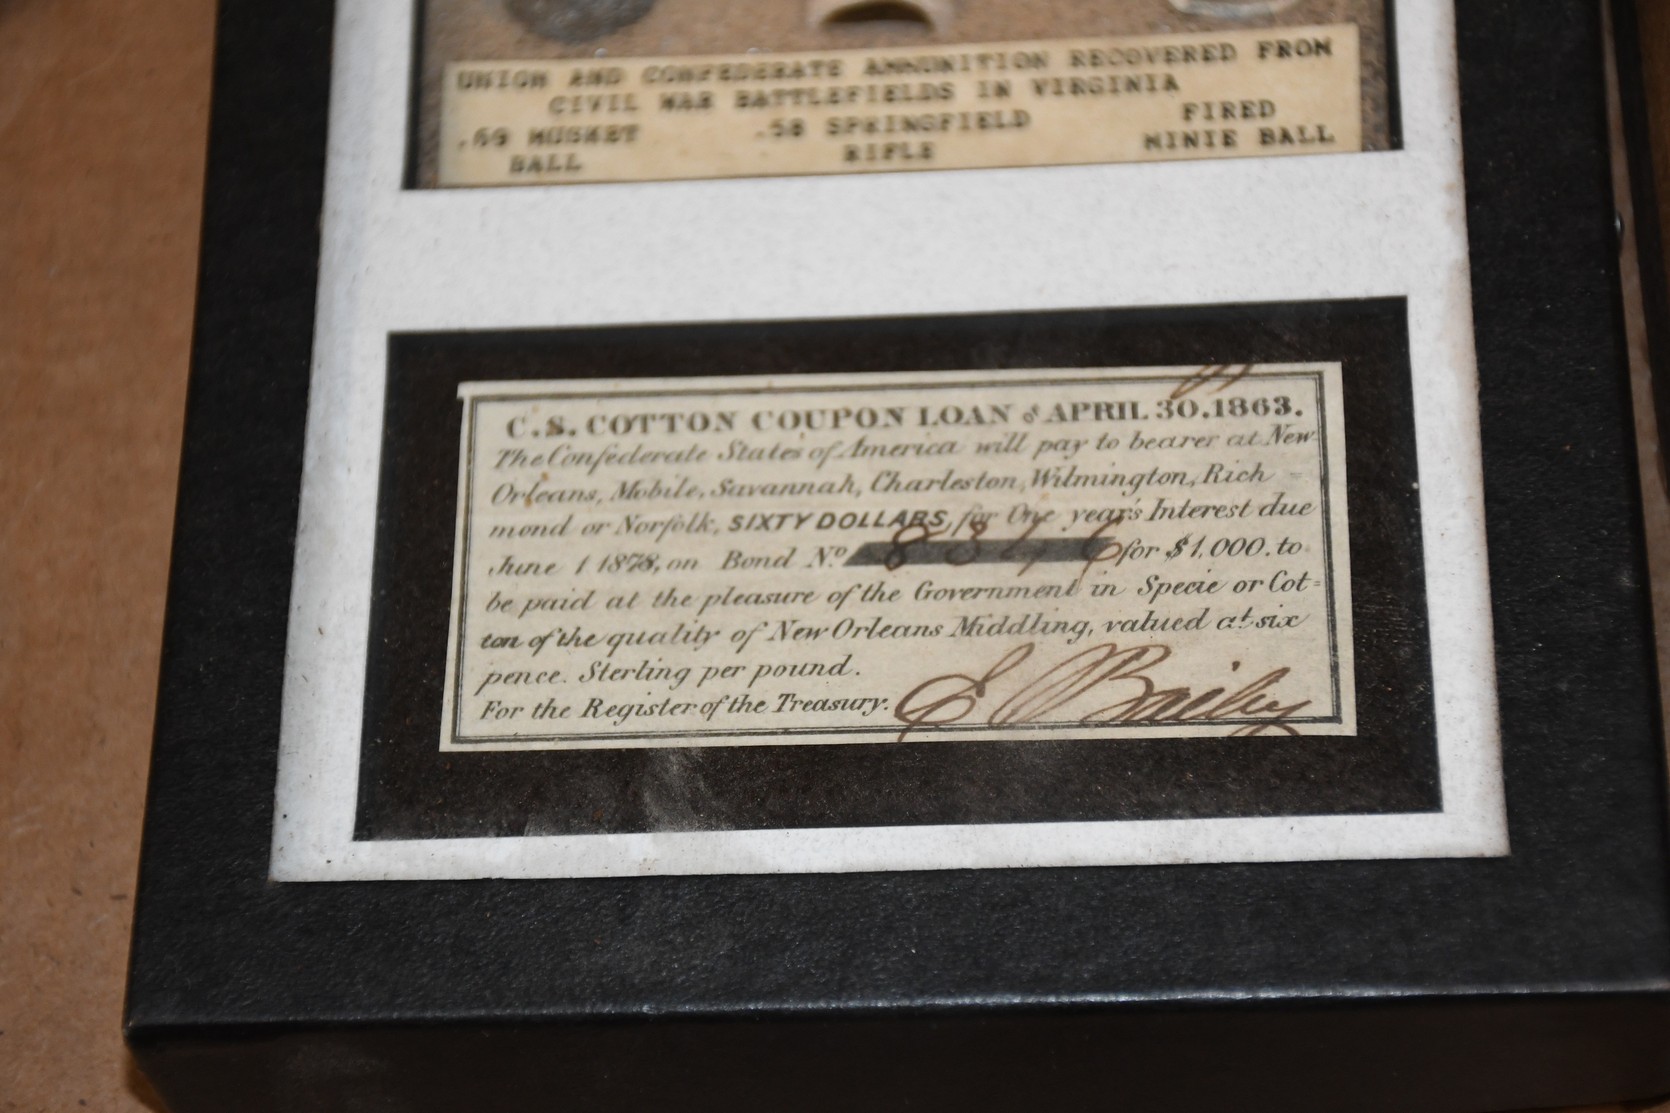 UNION AND CONFEDERATE AMMUNITION RECOVERED FROM
CIVIL WAR BATTLEFIELDS IN VIRGINIA
.69 MUSKET .58 SPRINGFIELD FIRED
BALL RIFLE MINIE BALL
C.S. COTTON COUPON LOAN of APRIL 30.1863.
The Confederate States of America will pay to bearer at New
Orleans, Mobile, Savannah, Charleston, Wilmington, Rich
mond or Norfolk, SIXTY DOLLARS, for One year's Interest due
June 1 1878, on Bond No. for $1,000. to
be paid at the pleasure of the Government in Specie or Cot=
ton of the quality of New Orleans Middling, valued at six
pence. Sterling per pound.
For the Register of the Treasury. E Bailey